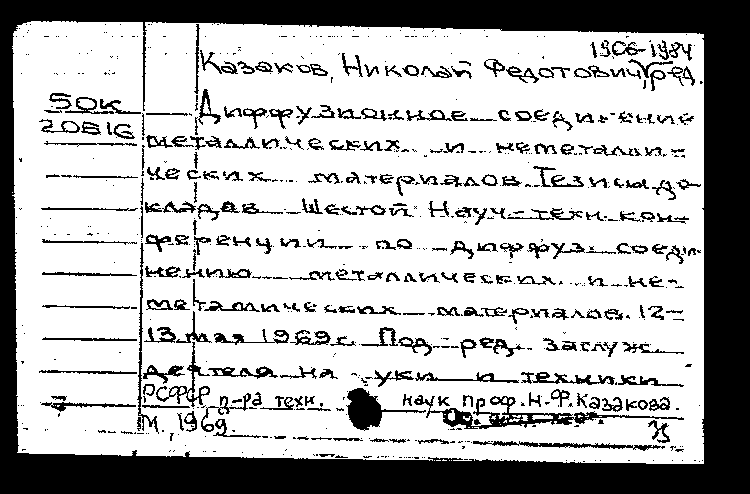 1906-1984
Казаков, Николай Федотович, ред.
50к
20816
Диффузионное соединение
металлических и неметалли-
ческих материалов. Тезисы до-
кладав Шестой Науч-техн. кон-
ференции по диффуз. соеди-
нению металлических и не-
металлических материалов. 12-
13 мая 1969 г. Под ред. заслуж.
деятеля на уки и техники
РСФСР, д-ра техн. наук проф. Н.Ф. Казакова.
М., 1969.